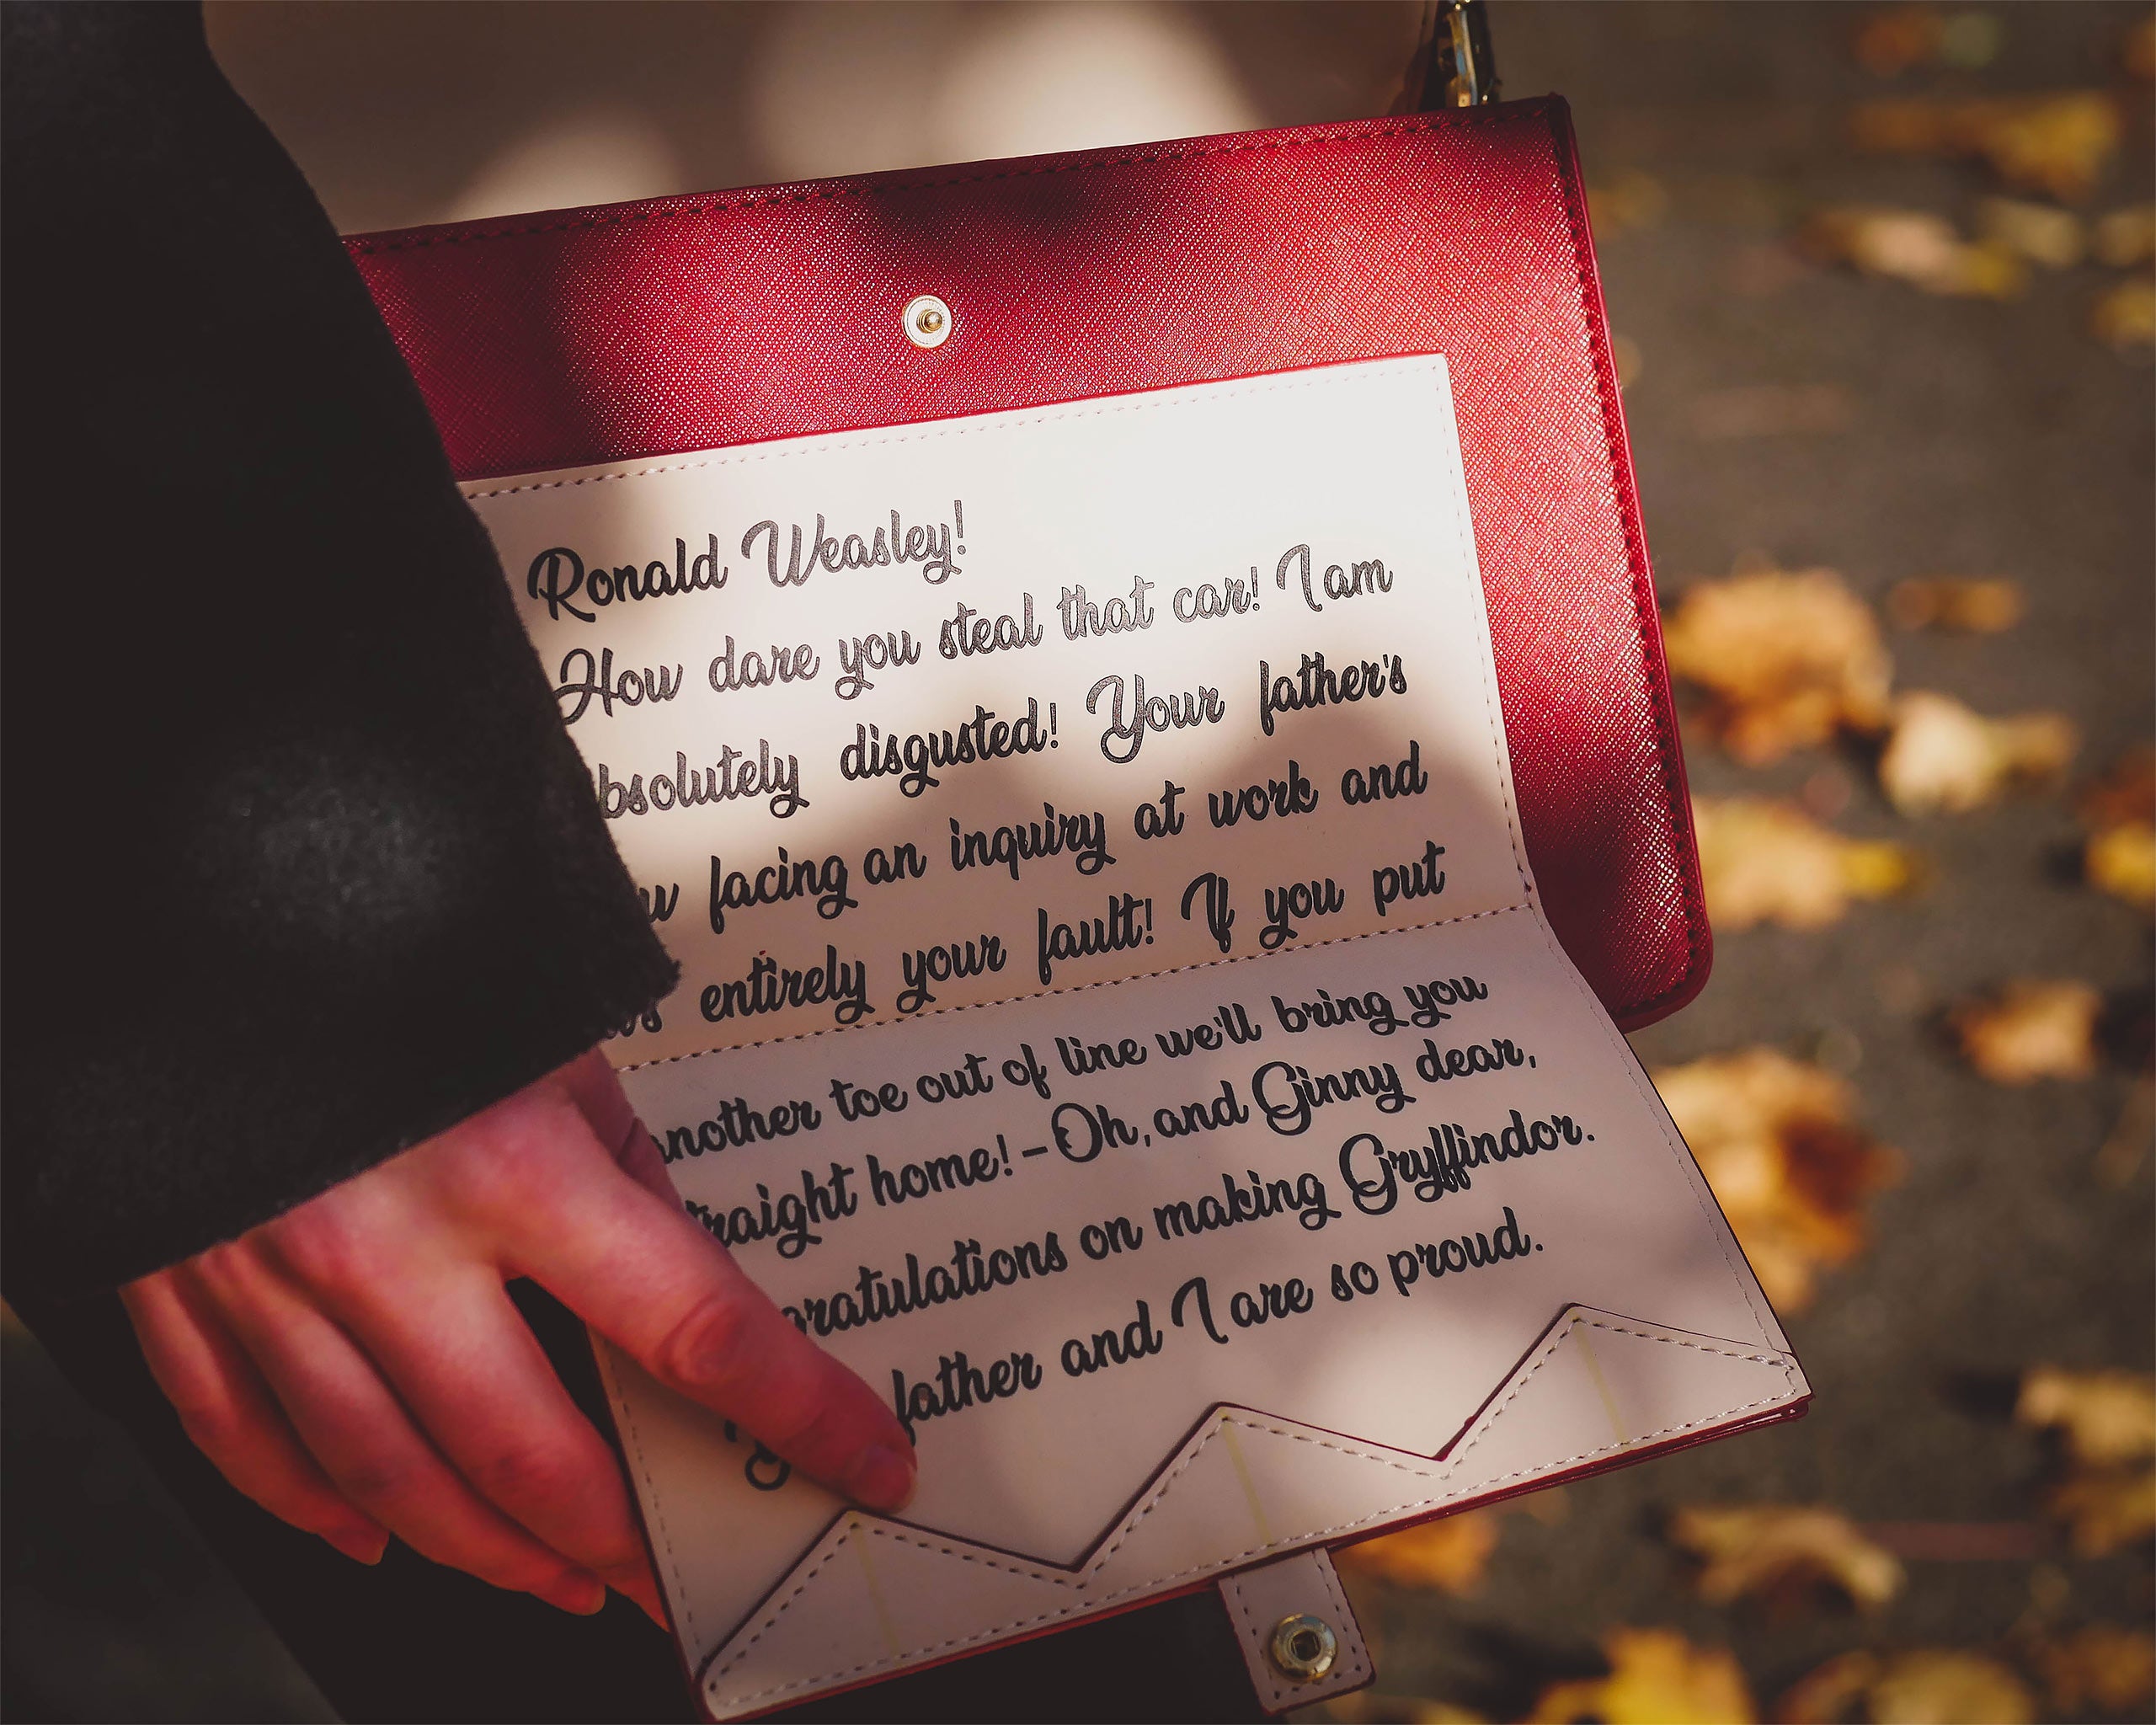 Ronald Weasley!
How dare you steal that car! I am
bsolutely disgusted! Your father's
w facing an inquiry at work and
entirely your fault! If you put
another toe out of line we'll bring you
traight home! - Oh, and Ginny dear,
gratulations on making Gryffindor.
father and I are so proud.